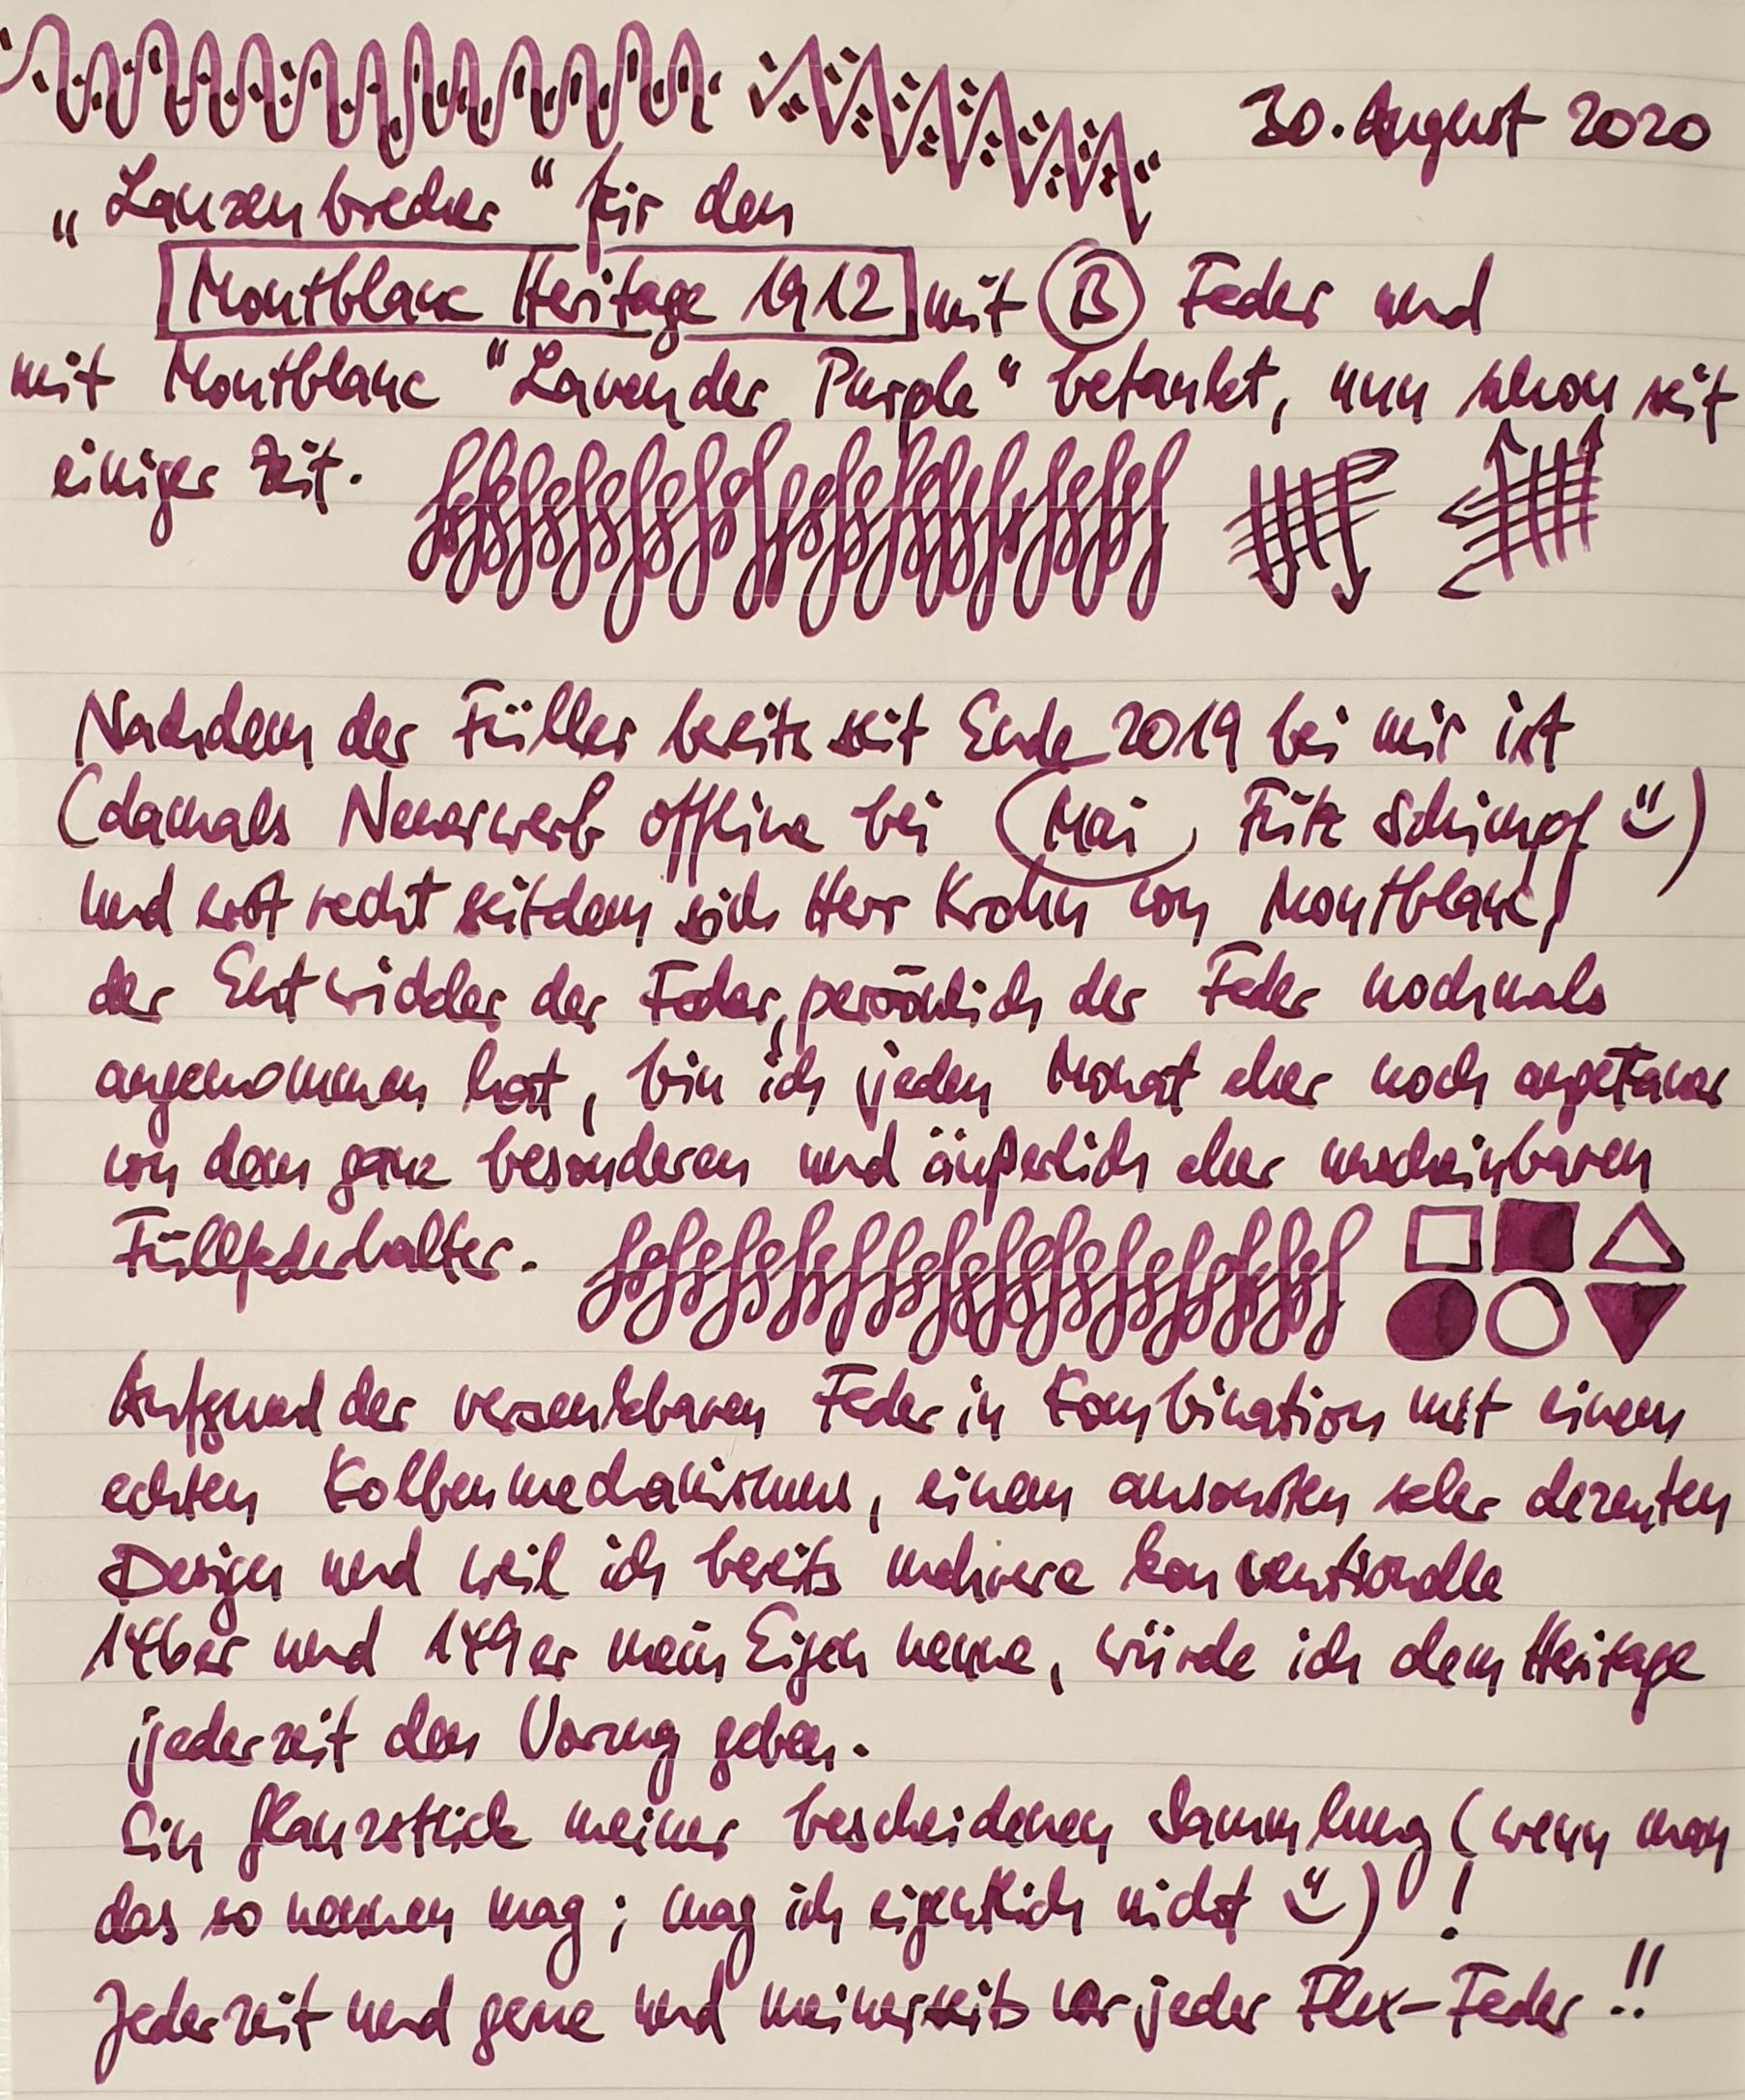 30. August 2020
„Lanzenbrecher“ für den
Montblanc Heritage 1912 mit B Feder und
mit Montblanc "Lavender Purple" betankt, nun schon seit
einiger Zeit.
Nachdem der Füller bereits seit Ende 2019 bei mir ist
(damals Neuerwerb offline bei Mai, Fritz Schimpf)
und erst recht seitdem sich Herr Krohn von Montblanc,
der Entwickler der Feder, persönlich der Feder nochmals
angenommen hat, bin ich jeden Monat eher noch angetaner
von dem ganz besonderen und äußerlich eher unscheinbaren
Füllfederhalter.
Aufgrund der versenkbaren Feder in Kombination mit einem
echten Kolbenmechanismus, einem ansonsten sehr dezenten
Design und weil ich bereits mehrere konventionelle
146er und 149er mein Eigen nenne, würde ich dem Heritage
jederzeit den Vorzug geben.
Ein Glanzstück meiner bescheidenen Sammlung (wenn man
das so nennen mag; mag ich eigentlich nicht)!
Jederzeit und gerne und meinerseits vor jeder Flex-Feder!!